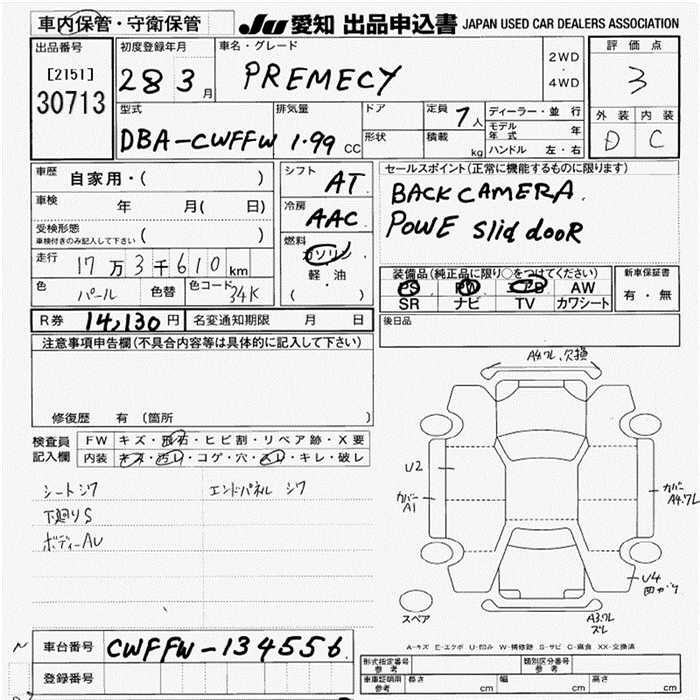 車内保管・守衛保管
JU 愛知 出品申込書 JAPAN USED CAR DEALERS ASSOCIATION
出品番号
[2151]
30713
初度登録年月
28 3月
車名・グレード
PREMECY
2WD
・
4WD
評価点
3
外装 内装
D C
型式
DBA-CWFFW
排気量
1.99 CC
ドア
形状
定員 7人
積載 kg
ディーラー・並行
モデル年式 年
ハンドル 左・右
車歴 自家用・( )
車検 年 月( 日)
受検形態
車検付きのみ記入して下さい ( )
走行 17万3千610km
色 パール 色替 色コード 34K
シフト AT
冷房 AAC
燃料
ガソリン
軽・油
( )
セールスポイント(正常に機能するものに限ります)
BACK CAMERA.
POWE Slid dooR
装備品(純正品に限り○をつけてください)
PS PW エアB AW
SR ナビ TV カワシート
新車保証書
有・無
R券 14,130円 名変通知期限 月 日
後日品
注意事項申告欄(不具合内容等は具体的に記入して下さい)
修復歴 有 (箇所
検査員
記入欄
FW キズ・飛石・ヒビ割・リペア跡・X要
内装 キズ・汚レ・コゲ・穴・スレ・キレ・破レ
シートシワ エンドパネル シワ
下廻りS
ボディーAU
A4フレ,欠換
U2
カバー
A1
カバー
A4フレ
U4
凹ガリ
スペア
A3フレ
ズレ
A-キズ E-エクボ U-凹み W-補修跡 S-サビ C-腐食 XX-交換済
車台番号 CWFFW-134556
登録番号
形式指定番号
参考
類別区分番号
参考
車庫証明用
参考
長さ cm 幅 cm 高さ cm